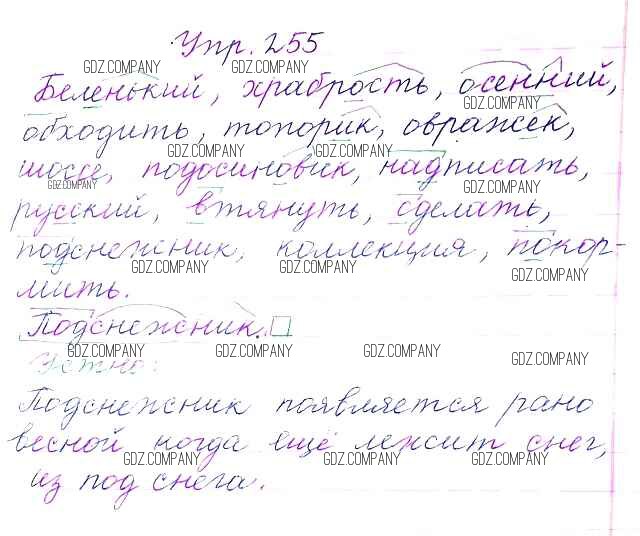 Упр. 255
GDZ.COMPANY GDZ.COMPANY
Беленький, храбрость, осенний,
GDZ.COMPANY
обходить, топорик, овражек,
GDZ.COMPANY GDZ.COMPANY
шоссе, подосиновик, надписать,
GDZ.COMPANY GDZ.COMPANY
русский, втянуть, сделать,
подснежник, коллекция, покор-
GDZ.COMPANY GDZ.COMPANY GDZ.COMPANY
мить.
Подснежник.
GDZ.COMPANY GDZ.COMPANY GDZ.COMPANY GDZ.COMPANY
Устно:
Подснежник появляется рано
весной когда ещё лежит снег,
GDZ.COMPANY GDZ.COMPANY GDZ.COMPANY
из под снега.